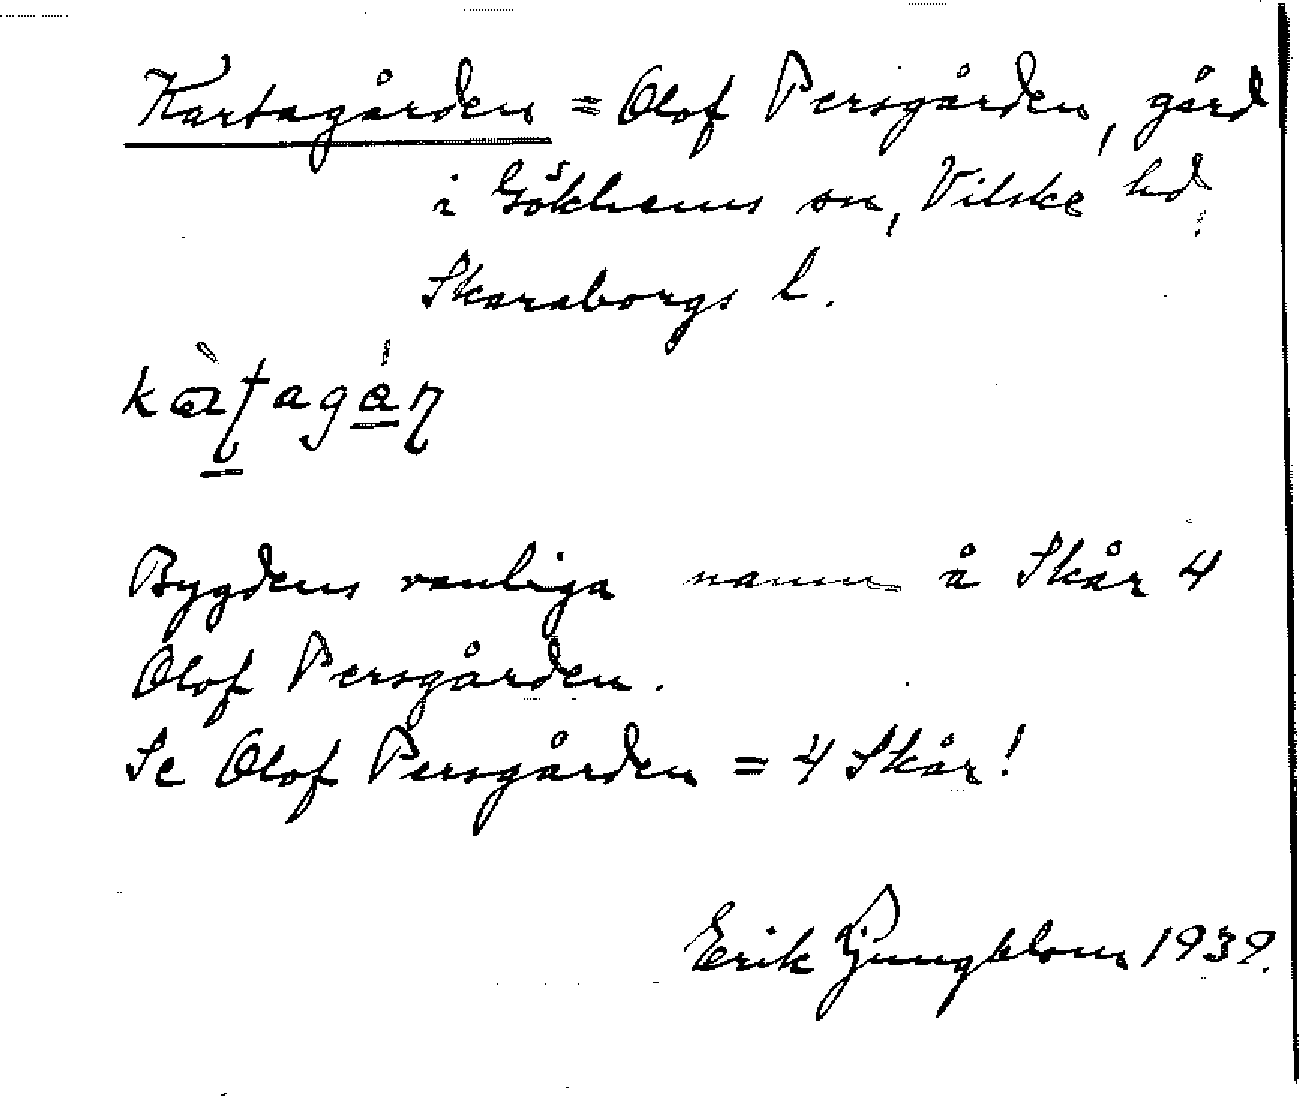 Kartagården = Olof Persgården, gård
i Gökhems sn, Vilske hd,
Skaraborgs l.
Bygdens vanliga namn å Skår 4
Olof Persgården.
Se Olof Persgården = 4 Skår!
Erik Ljungblom 1939.